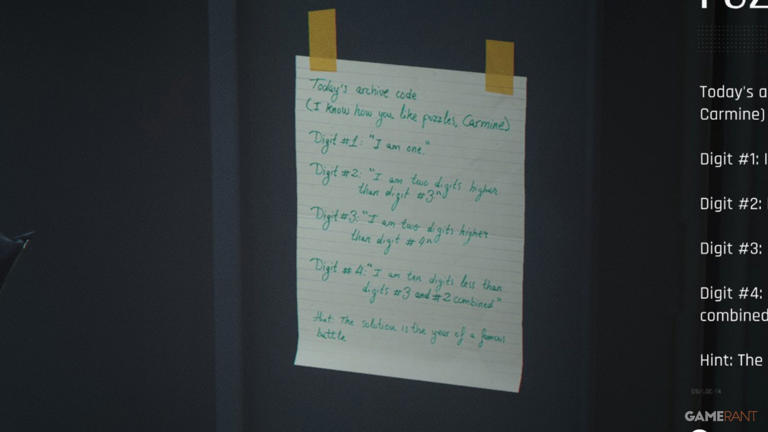 Today's archive code
(I know how you like puzzles, Carmine)
Digit #1: "I am one."
Digit #2: "I am two digits higher
than digit #3"
Digit #3: "I am two digits higher
than digit #4"
Digit #4: "I am ten digits less than
digits #3 and #2 combined"
Hint: The solution is the year of a famous
battle
Today's a
Carmine)
Digit #1: I
Digit #2:
Digit #3:
Digit #4:
combined
Hint: The
GAMERANT